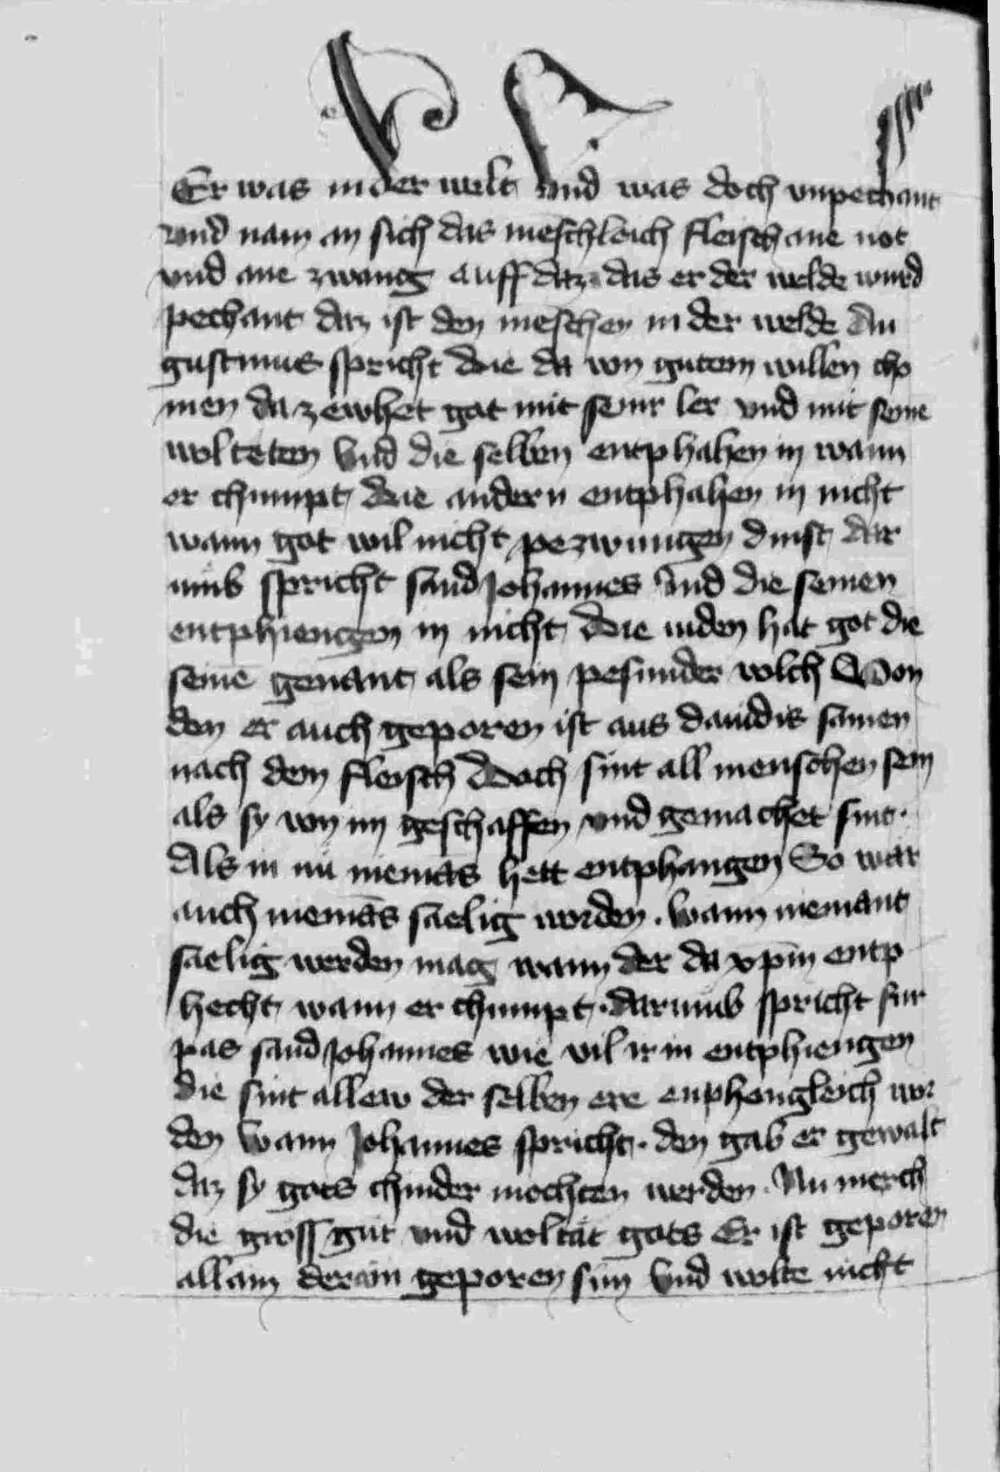 Er was in der welt vnd was doch vnpechant
vnd nam an sich das meschleich fleisch ane not
vnd ane zwang auff daz das er der welde wurd
pechant daz ist den meschen in der welde Au
gustinus spricht die da von gutem willen cho
men da zewhet got mit seinr ler vnd mit seine
wolteten Vnd die selben entphahen in wann
er chumpt die andern entphahen in nicht
wann got wil nicht pezwungen dinst dar
umb spricht sand Johannes Vnd die seinen
entphiengen in nicht Die iuden hat got die
seinē genant als sein pesunder volch Von
den er auch geporen ist aus dauidis samen
nach dem fleisch Doch sint all menschen sein
als sy von im geschaffen vnd gemachet sint.
Als in nü niemās hett entphangen So wär
auch niemās saelig worden. wann niemant
saelig werden mag wann der da xp̄m entp
hecht wann er chumpt. darumb spricht fur
pas sand Johannes wie vil ir in entphiengen
die sint allew der selben ere enphengleich wor
den Wann Johannes spricht. den gab er gewalt
daz sy gots chinder mochten werden. Nu merch
die gross güt vnd woltät gots Er ist geporen
allain der ain geporen sun Vnd wolte nicht